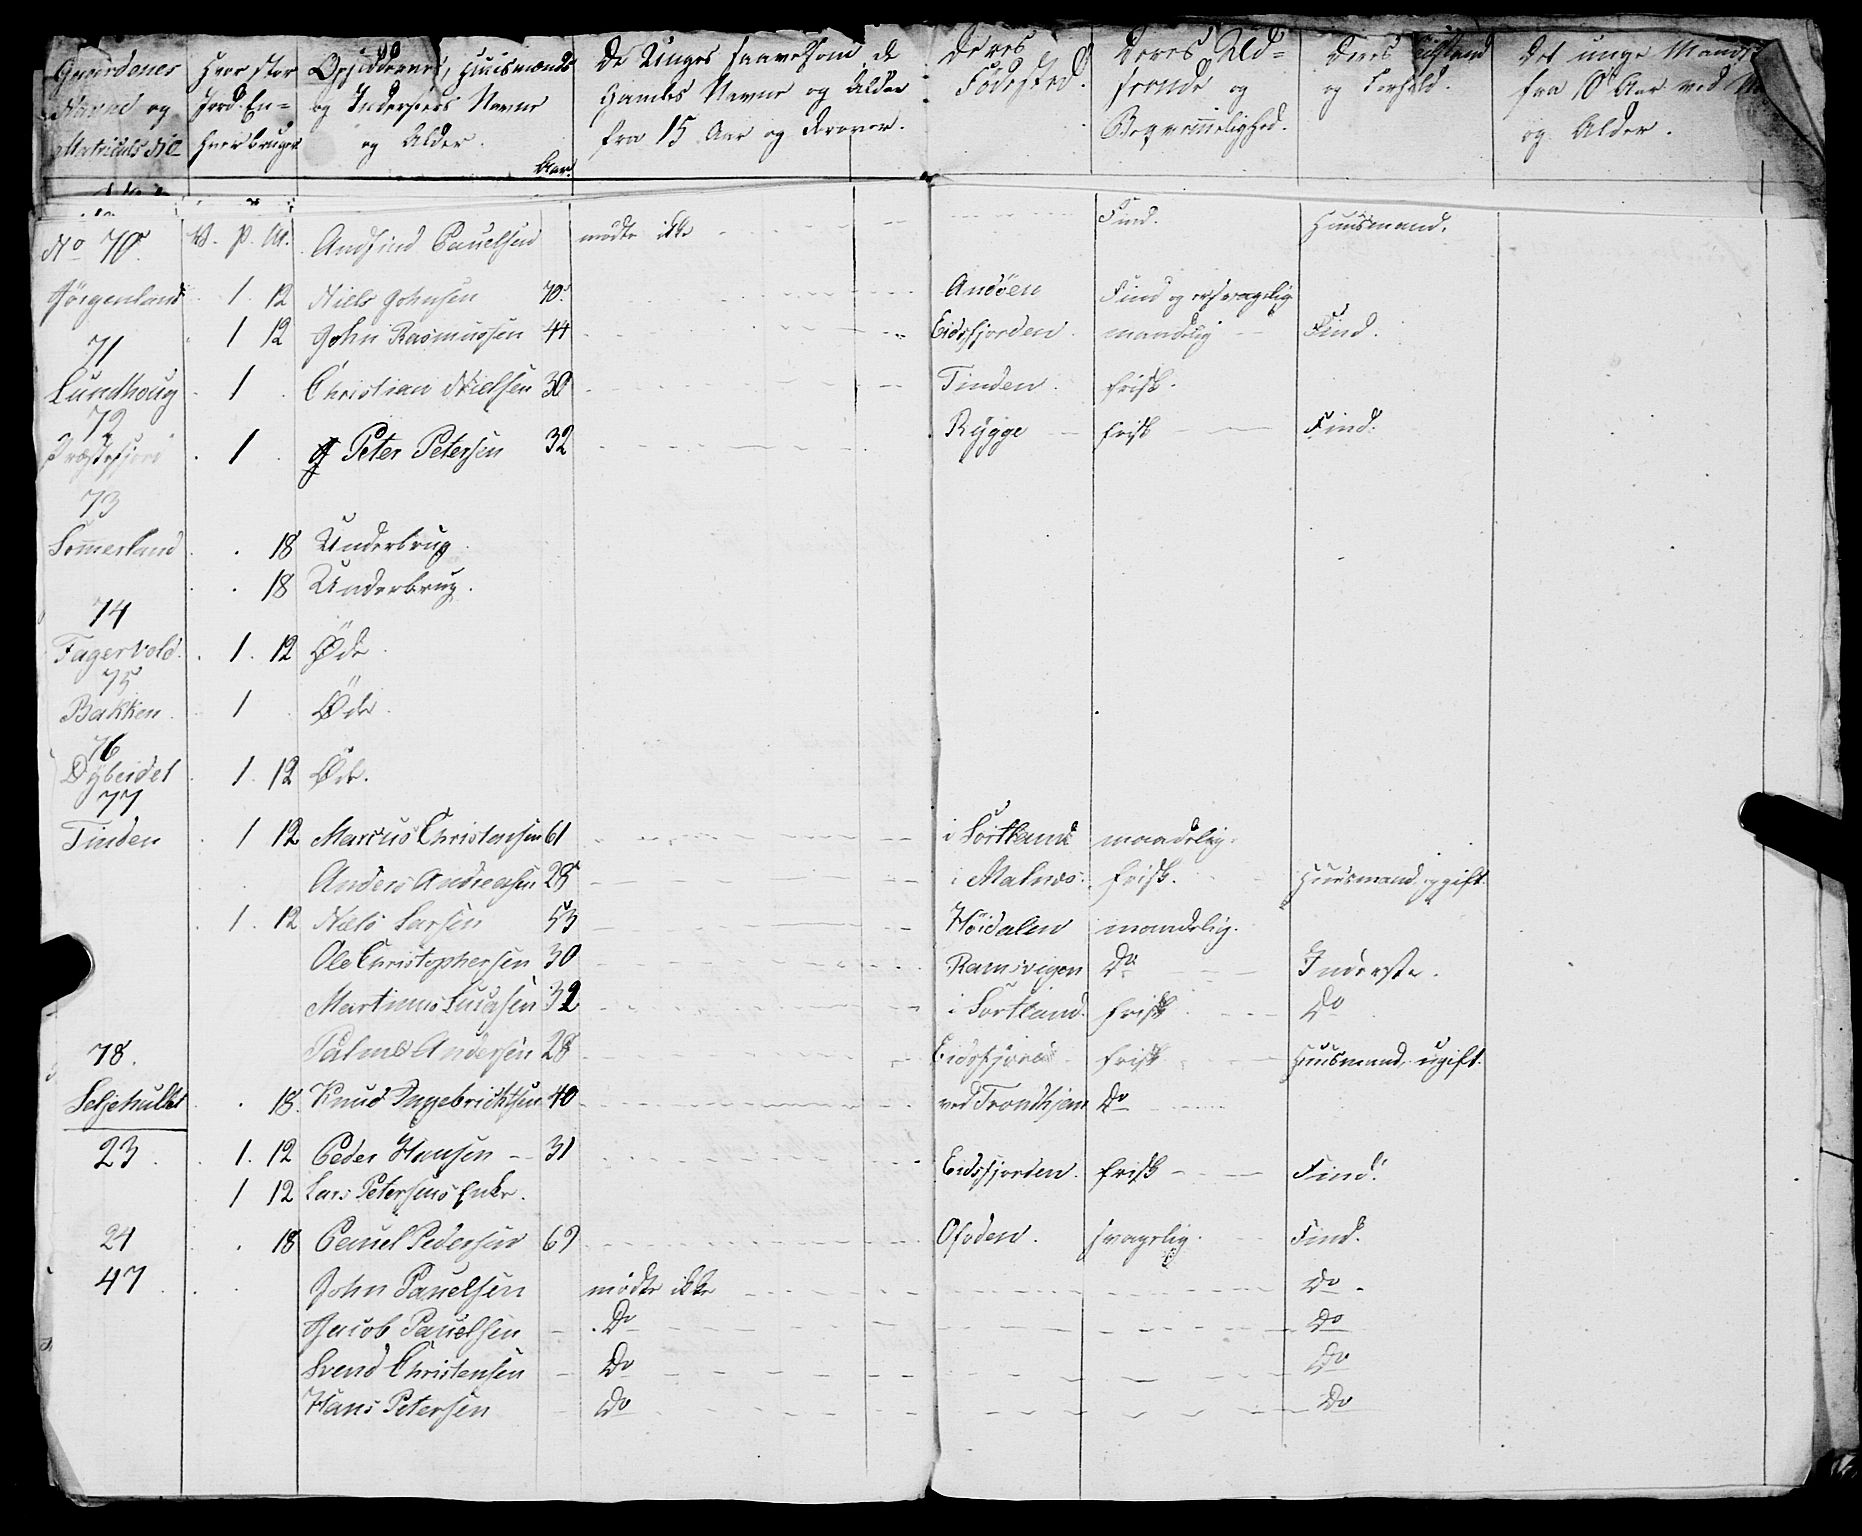 Gaardenes Navne og Matriculs No
Hvor stor Jord Enhver bruger
Opsiddernes, Huusmænds og Indersters Navne og Alder. Aar.
De Unges saavelsom de Gamles Navne og Alder fra 15 Aar og derover.
Deres Fødested.
Deres Udseende og Beqvemmelighed.
Deres Tilstand og Forhold.
Det unge Mandsk fra 10 Aar ved
og Alder.
No 70. V. P. M. Andfind Pauelsen mødte ikke Find. Huusmand.
Jörgenland 1 12 Niels Johnsen 70. Andöen Find og svagelig
1 12 John Rasmussen 44 Eidsfjorden. maadelig Find.
71
Lundhoug 1 Christian Nielsen 30 Tinden. frisk.
72
Præstefjord 1 Peter Petersen 32 Rygge frisk Find.
73
Somerland 18 Underbrug.
18 Underbrug.
74
Fagervold. 1. 12 Øde.
75
Bakken. 1 Øde.
76
Dybeidet 1. 12 Øde.
77
Tinden 1 12 Marcus Christensen 61 i Sortland maadelig.
Anders Andreasen 28 i Malnes. frisk. Huusmand, ugift.
1. 12 Niels Larsen 53 Höidalen maadelig.
Ole Christophersen 30 Ramsvigen Do Inderste.
Martinus Lucasen 32 i Sortland. frisk Do
78. Andersen 28 Eidsfjord frisk Huusmand, ugift.
Seljehullet 18. Knud Ingebrichtsen 40 ved Trondhjem Do
23. 1. 12 Peder Hansen 31 Eidsfjorden. frisk Find.
1 12 Lars Petersens Enke.
24 18 Pauel Pedersen 69 Ofoden. svagelig. Find.
47 John Pauelsen mødte ikke Do.
Jacob Pauelsen Do Do
Svend Christensen Do Do
Hans Petersen Do Do